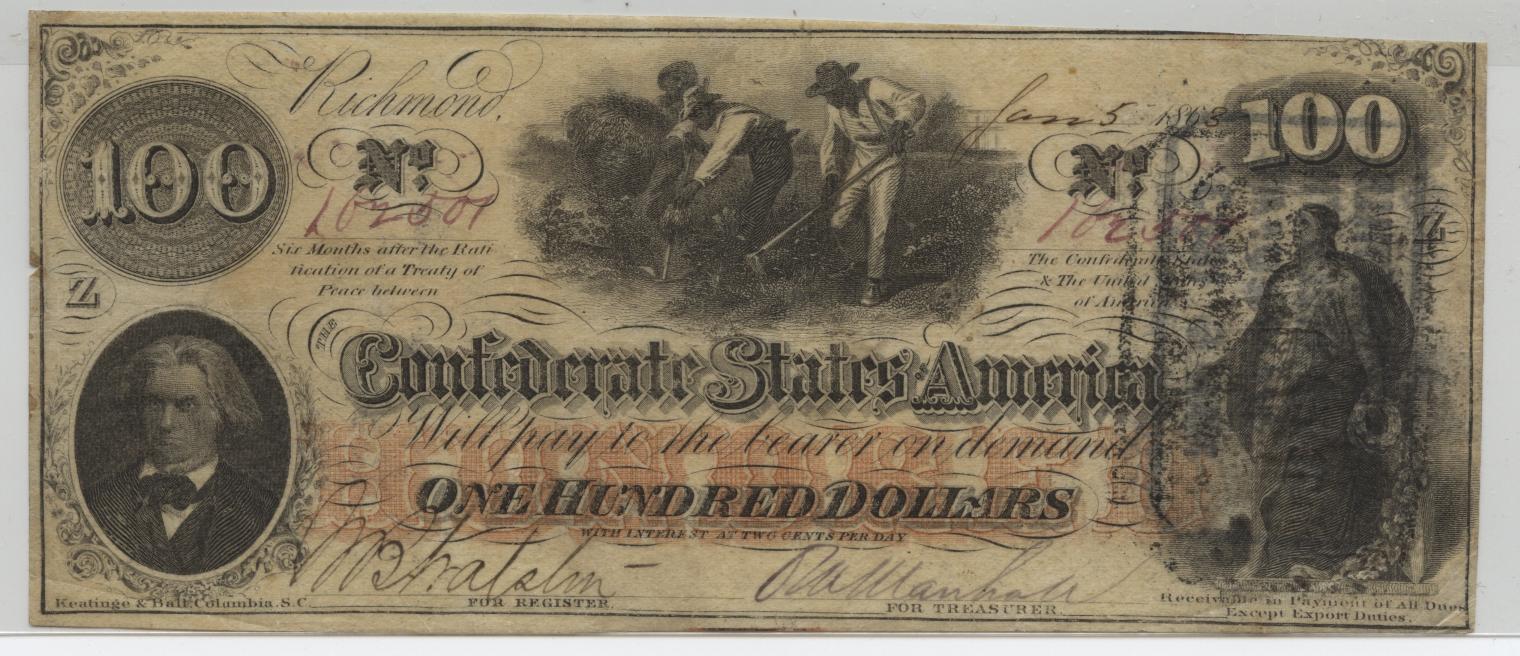 Richmond,
Jan 5 1863
100
100
No.
No.
102501
Six Months after the Rati-
fication of a Treaty of
Peace between
The Confederate States
& The United States
of America
Z
Z
THE
Confederate States of America
Will pay to the bearer on demand
HUNDRED
ONE HUNDRED DOLLARS
WITH INTEREST AT TWO CENTS PER DAY
FOR REGISTER.
FOR TREASURER.
Keatinge & Ball, Columbia, S.C.
Receivable in Payment of All Dues
Except Export Duties.